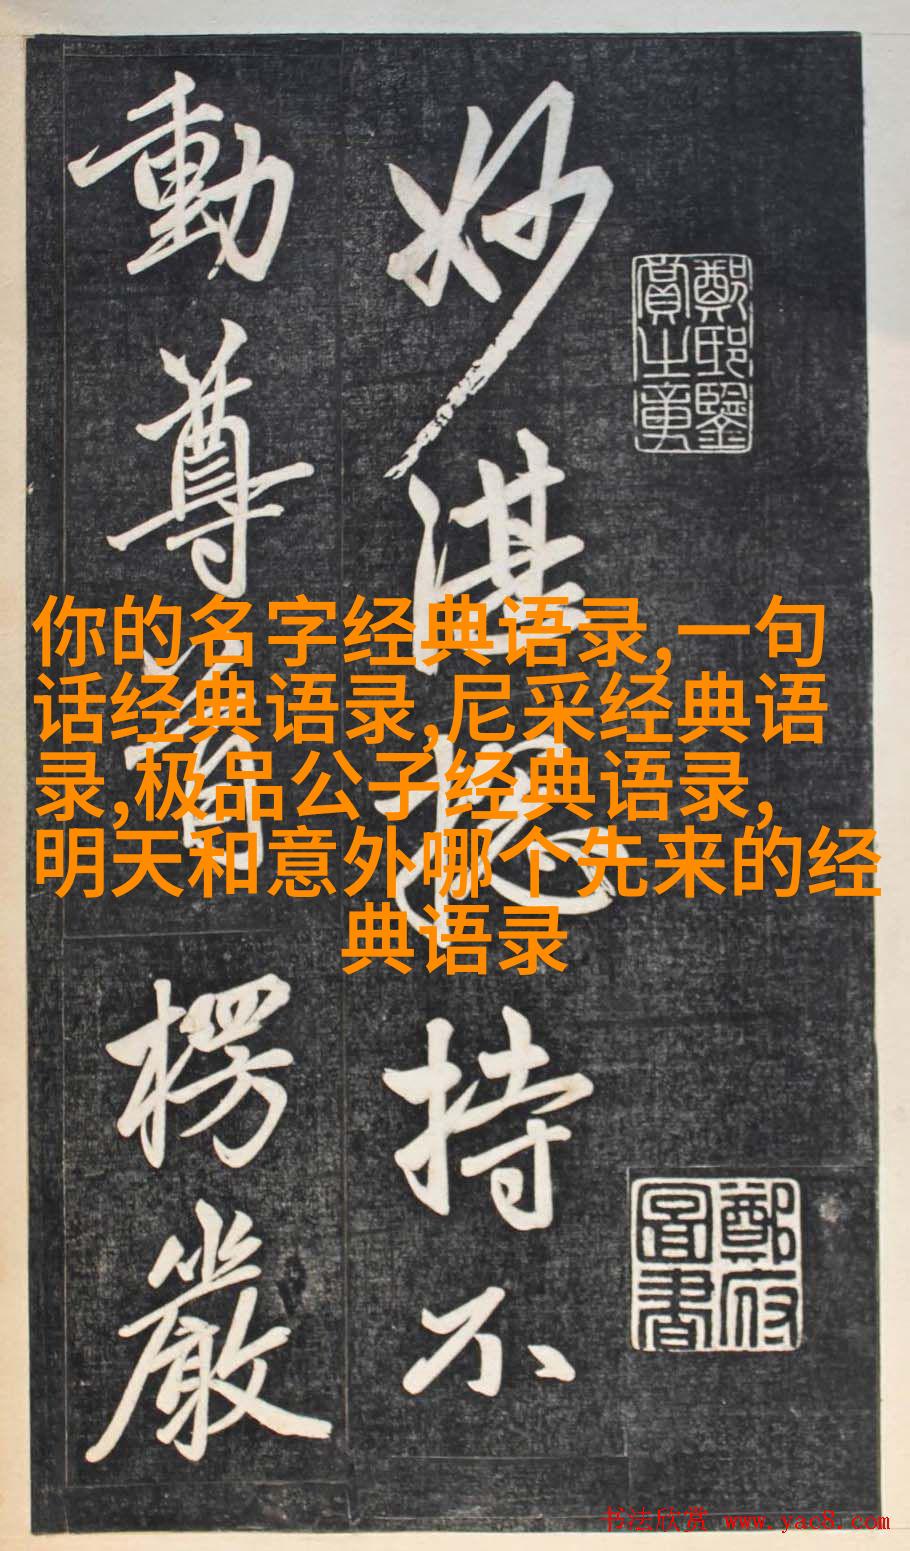 妙湛揔持不
動尊首楞嚴
鄭邸鑒賞之章
鄭府圖書
你的名字经典语录,一句
话经典语录,尼采经典语
录,极品公子经典语录,
明天和意外哪个先来的经
典语录
书法欣赏 www.yac8.com